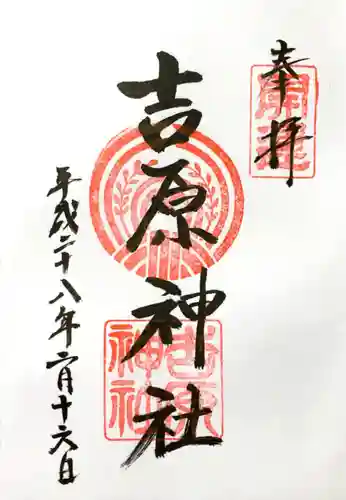 奉拝
開運
吉原神社
吉原神社
平成二十八年二月十六日